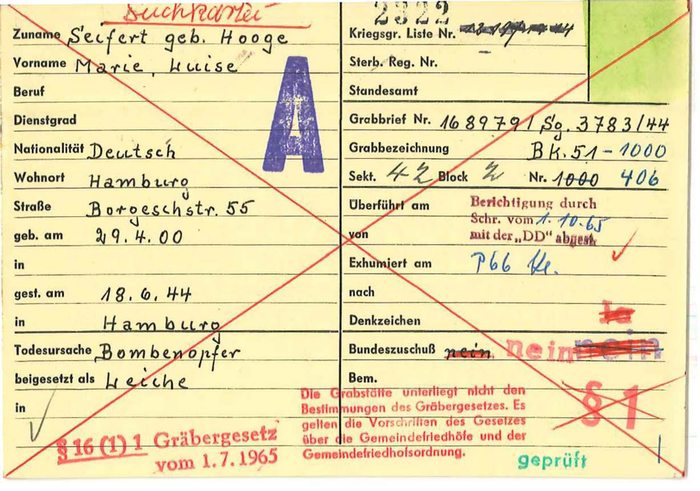 Suchkartei
Zuname Seifert geb. Hooge
Vorname Marie, Luise
Beruf
Dienstgrad
Nationalität Deutsch
Wohnort Hamburg
Straße Borgeschstr. 55
geb. am 29.4.00
in
gest. am 18.6.44
in Hamburg
Todesursache Bombenopfer
beigesetzt als Leiche
in
§ 16 (1) 1 Gräbergesetz
vom 1.7.1965
A
2322
Kriegsgr. Liste Nr.
Sterb. Reg. Nr.
Standesamt
Grabbrief Nr. 168979 / Sg. 3783/44
Grabbezeichnung Bk. 51 - 1000
Sekt. 42 Block Z Nr. 1000 406
Überführt am
Berichtigung durch
Schr. vom 1.10.65
mit der „DD" abgest.
von
Exhumiert am
nach
Denkzeichen ja
Bundeszuschuß nein. nein nein
Bem.
Die Grabstätte unterliegt nicht den
Bestimmungen des Gräbergesetzes. Es
gelten die Vorschriften des Gesetzes
über die Gemeindefriedhöfe und der
Gemeindefriedhofsordnung.
§ 1
geprüft